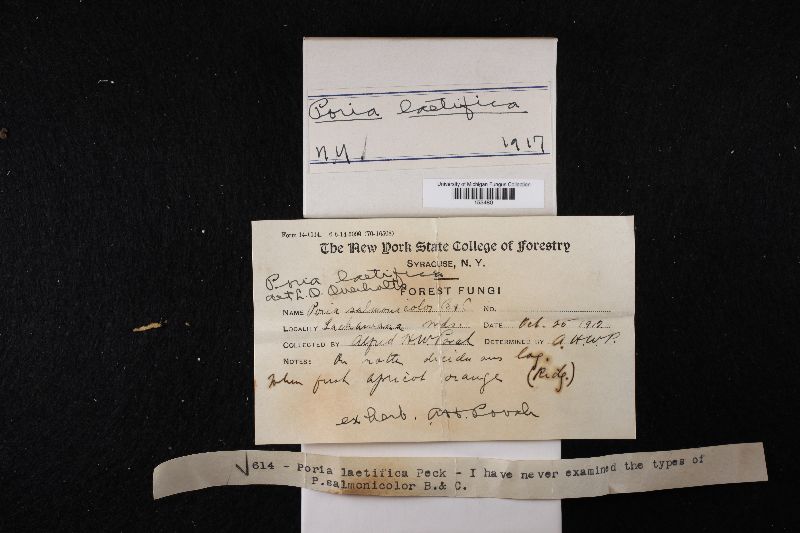 Poria laetifica
N.Y. 1917
University of Michigan Fungus Collection
The New York State College of Forestry
SYRACUSE, N. Y.
Poria laetifica
det L.O. Overholts
FOREST FUNGI
NAME Poria salmonicolor B&C NO.
LOCALITY Lackawana Wds. DATE Oct. 25 1917
COLLECTED BY Alfred H.W. Povah DETERMINED BY A.H.W.P.
NOTES: On rotten deciduous log.
When fresh apricot orange (Ridg.)
ex herb. AH. Povah
614 - Poria laetifica Peck - I have never examined the types of
P.salmonicolor B.& C.